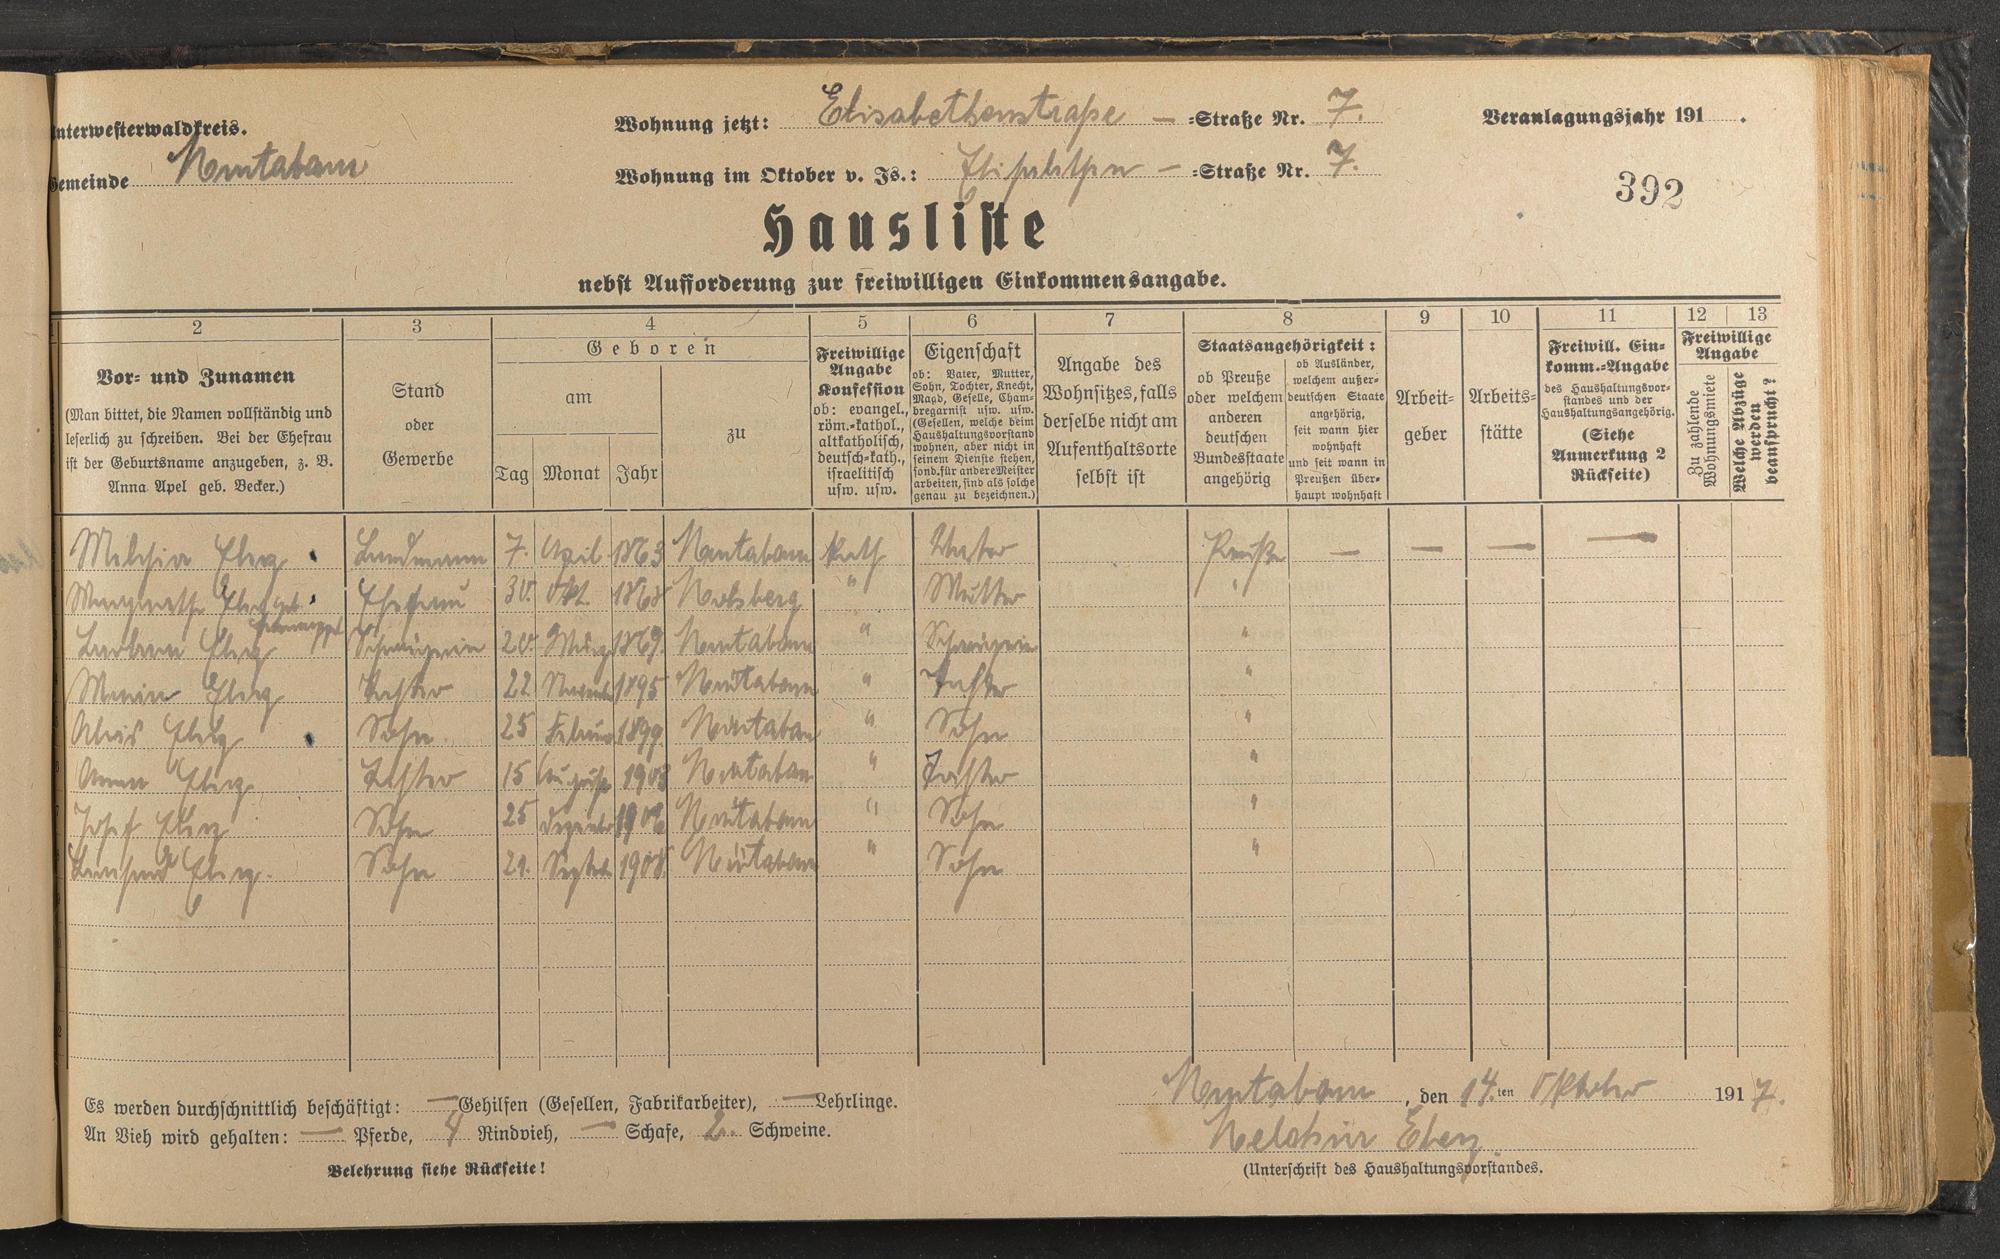 Unterwesterwaldkreis.
Wohnung jetzt: Elisabethenstraße — =Straße Nr. 7.
Veranlagungsjahr 191 .
Gemeinde Montabaur
Wohnung im Oktober v. Js.: — =Straße Nr. 7.
392
Hausliste
nebst Aufforderung zur freiwilligen Einkommensangabe.
2 3 4 5 6 7 8 9 10 11 12 13
Vor- und Zunamen
(Man bittet, die Namen vollständig und
leserlich zu schreiben. Bei der Ehefrau
ist der Geburtsname anzugeben, z. B.
Anna Apel geb. Becker.)
Stand
oder
Gewerbe
Geboren
am
Tag Monat Jahr
zu
Freiwillige
Angabe
Konfession
ob: evangel.,
röm.-kathol.,
altkatholisch,
deutsch-kath.,
israelitisch
usw. usw.
Eigenschaft
ob: Vater, Mutter,
Sohn, Tochter, Knecht,
Magd, Geselle, Cham-
bregarnist usw. usw.
(Gesellen, welche beim
Haushaltungsvorstand
wohnen, aber nicht in
seinem Dienste stehen,
sond. für andere Meister
arbeiten, sind als solche
genau zu bezeichnen.)
Angabe des
Wohnsitzes, falls
derselbe nicht am
Aufenthaltsorte
selbst ist
Staatsangehörigkeit:
ob Preuße
oder welchem
anderen
deutschen
Bundesstaate
angehörig
ob Ausländer,
welchem außer-
deutschen Staate
angehörig,
seit wann hier
wohnhaft
und seit wann in
Preußen über-
haupt wohnhaft
Arbeit-
geber
Arbeits-
stätte
Freiwill. Ein-
komm.-Angabe
des Haushaltungsvor-
standes und der
Haushaltungsangehörig.
(Siehe
Anmerkung 2
Rückseite)
Freiwillige
Angabe
Zu zahlende
Wohnungsmiete
Welche Abzüge
werden
beansprucht?
Melchior Eberz Landmann 7. April 1863 Montabaur Kath Vater Preuße — — — —
Margareth Eberz geb. Ehefrau 30. Okt. Molsberg " Mutter "
Barbara Eberz Schwägerin 20. März 1869. Montabaur " Schwägerin "
Maria Eberz Tochter 22 1895 Montabaur " Tochter "
Alois Eberz Sohn 25 Februar 1899 Montabaur " Sohn "
Anna Eberz Tochter 15 August 1903 Montabaur " Tochter "
Josef Eberz Sohn 25 Dezember Montabaur " Sohn "
Eberz. Sohn Septbr. 1908 Montabaur " Sohn "
Es werden durchschnittlich beschäftigt: — Gehilfen (Gesellen, Fabrikarbeiter), — Lehrlinge.
An Vieh wird gehalten: — Pferde, 4 Rindvieh, — Schafe, 2. Schweine.
Belehrung siehe Rückseite!
Montabaur, den 14.ten Oktober 1917.
Melchior Eberz
(Unterschrift des Haushaltungsvorstandes.